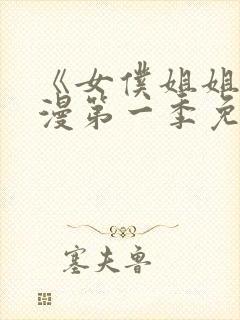 《女僕姐姐
漫第一季免
塞夫魯